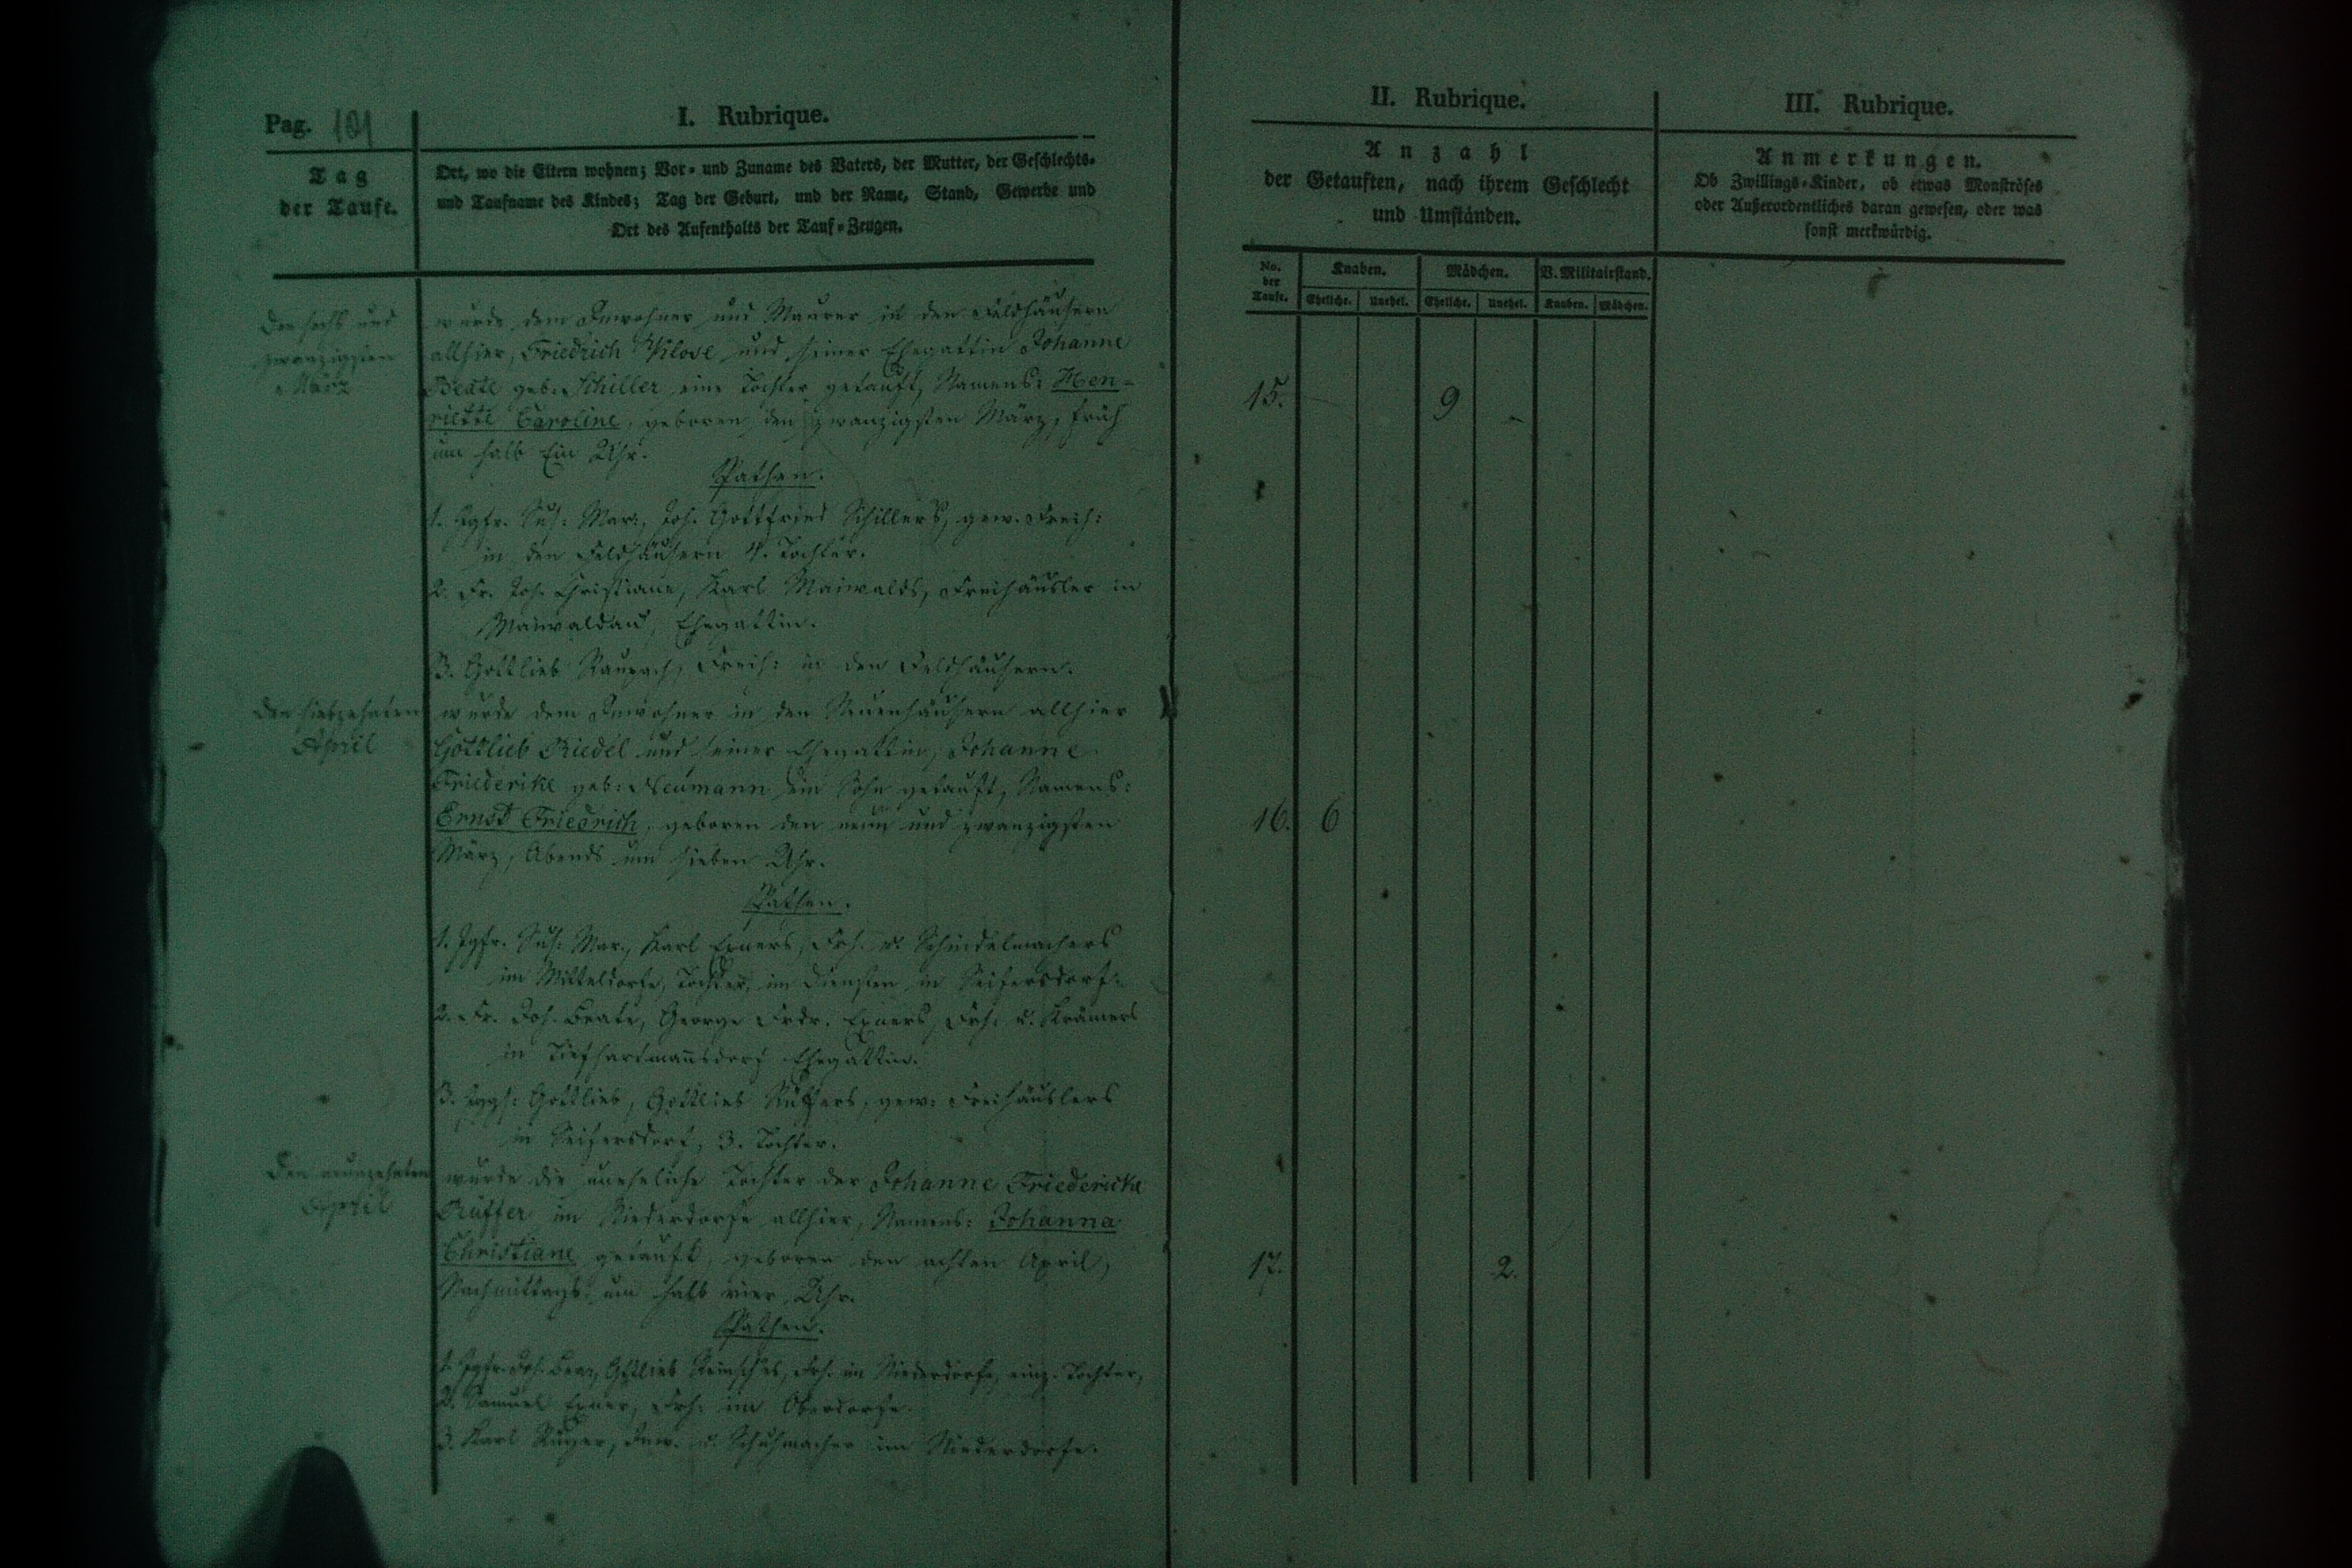 Pag. 101
I. Rubrique.
Tag
der Taufe.
Ort, wo die Eltern wohnen; Vor- und Zuname des Vaters, der Mutter, der Geschlechts-
und Taufname des Kindes; Tag der Geburt, und der Name, Stand, Gewerbe und
Ort des Aufenthalts der Tauf-Zeugen.
II. Rubrique.
Anzahl
der Getauften, nach ihrem Geschlecht
und Umständen.
III. Rubrique.
Anmerkungen.
Ob Zwillings-Kinder, ob etwas Monströses
oder Außerordentliches daran gewesen, oder was
sonst merkwürdig.
No.
der
Taufe.
Knaben.
Mädchen.
V. Militairstand.
Eheliche.
Unehel.
Eheliche.
Unehel.
Knaben.
Mädchen.
Den sechs und
zwanzigsten
März
wurde dem Inwohner und Maurer in den Feldhäusern
allhier, Friedrich Klose und seiner Ehegattin Johanne
Beate geb. Schiller eine Tochter getauft, Namens: Hen-
riette Caroline, geboren den zwanzigsten März, früh
um halb Ein Uhr.
15.
9
Pathen.
1. Jgfr. Sus. Mar., Joh. Gottfried Schillers, gew. Freih:
in den Feldhäusern 4. Tochter.
2. Fr. Joh. Christiane, Karl Maiwalds, Freihäusler in
Maiwaldau, Ehegattin.
3. Gottlieb Raupach, Freih: in den Feldhäusern.
Den siebzehnten
April
wurde dem Inwohner in den Neuenhäusern allhier
Gottlieb Riedel und seiner Ehegattin, Johanne
Friederike geb: Neumann ein Sohn getauft, Namens:
Ernst Friedrich, geboren den neun und zwanzigsten
März, Abends um sieben Uhr.
16.
6
Pathen.
1. Jgfr. Sus. Mar., Karl Exners, Frh. u. Schindelmachers
im Mitteldorfe, Tochter, im Diensten in Seifersdorf.
2. Fr. Joh. Beate, George Frdr. Exners, Frh. u. Krämers
in Tiefhartmannsdorf Ehegattin.
3. Jggs: Gottlieb, Gottlieb Rüffers, gew: Freihäuslers
in Seifersdorf, 3. Tochter.
Den neunzehnten
April
wurde die uneheliche Tochter der Johanne Friedericke
Rüffer im Niederdorfe allhier, Namens: Johanna
Christiane getauft, geboren den achten April,
Nachmittags um halb vier Uhr.
17.
2.
Pathen.
1. Jgfr. Joh. Gottlieb Frh. im Niederdorfe, einz. Tochter,
2. Samuel Exner, Frh: im Oberdorfe.
3. Karl Inw. u. Schuhmacher im Niederdorfe.